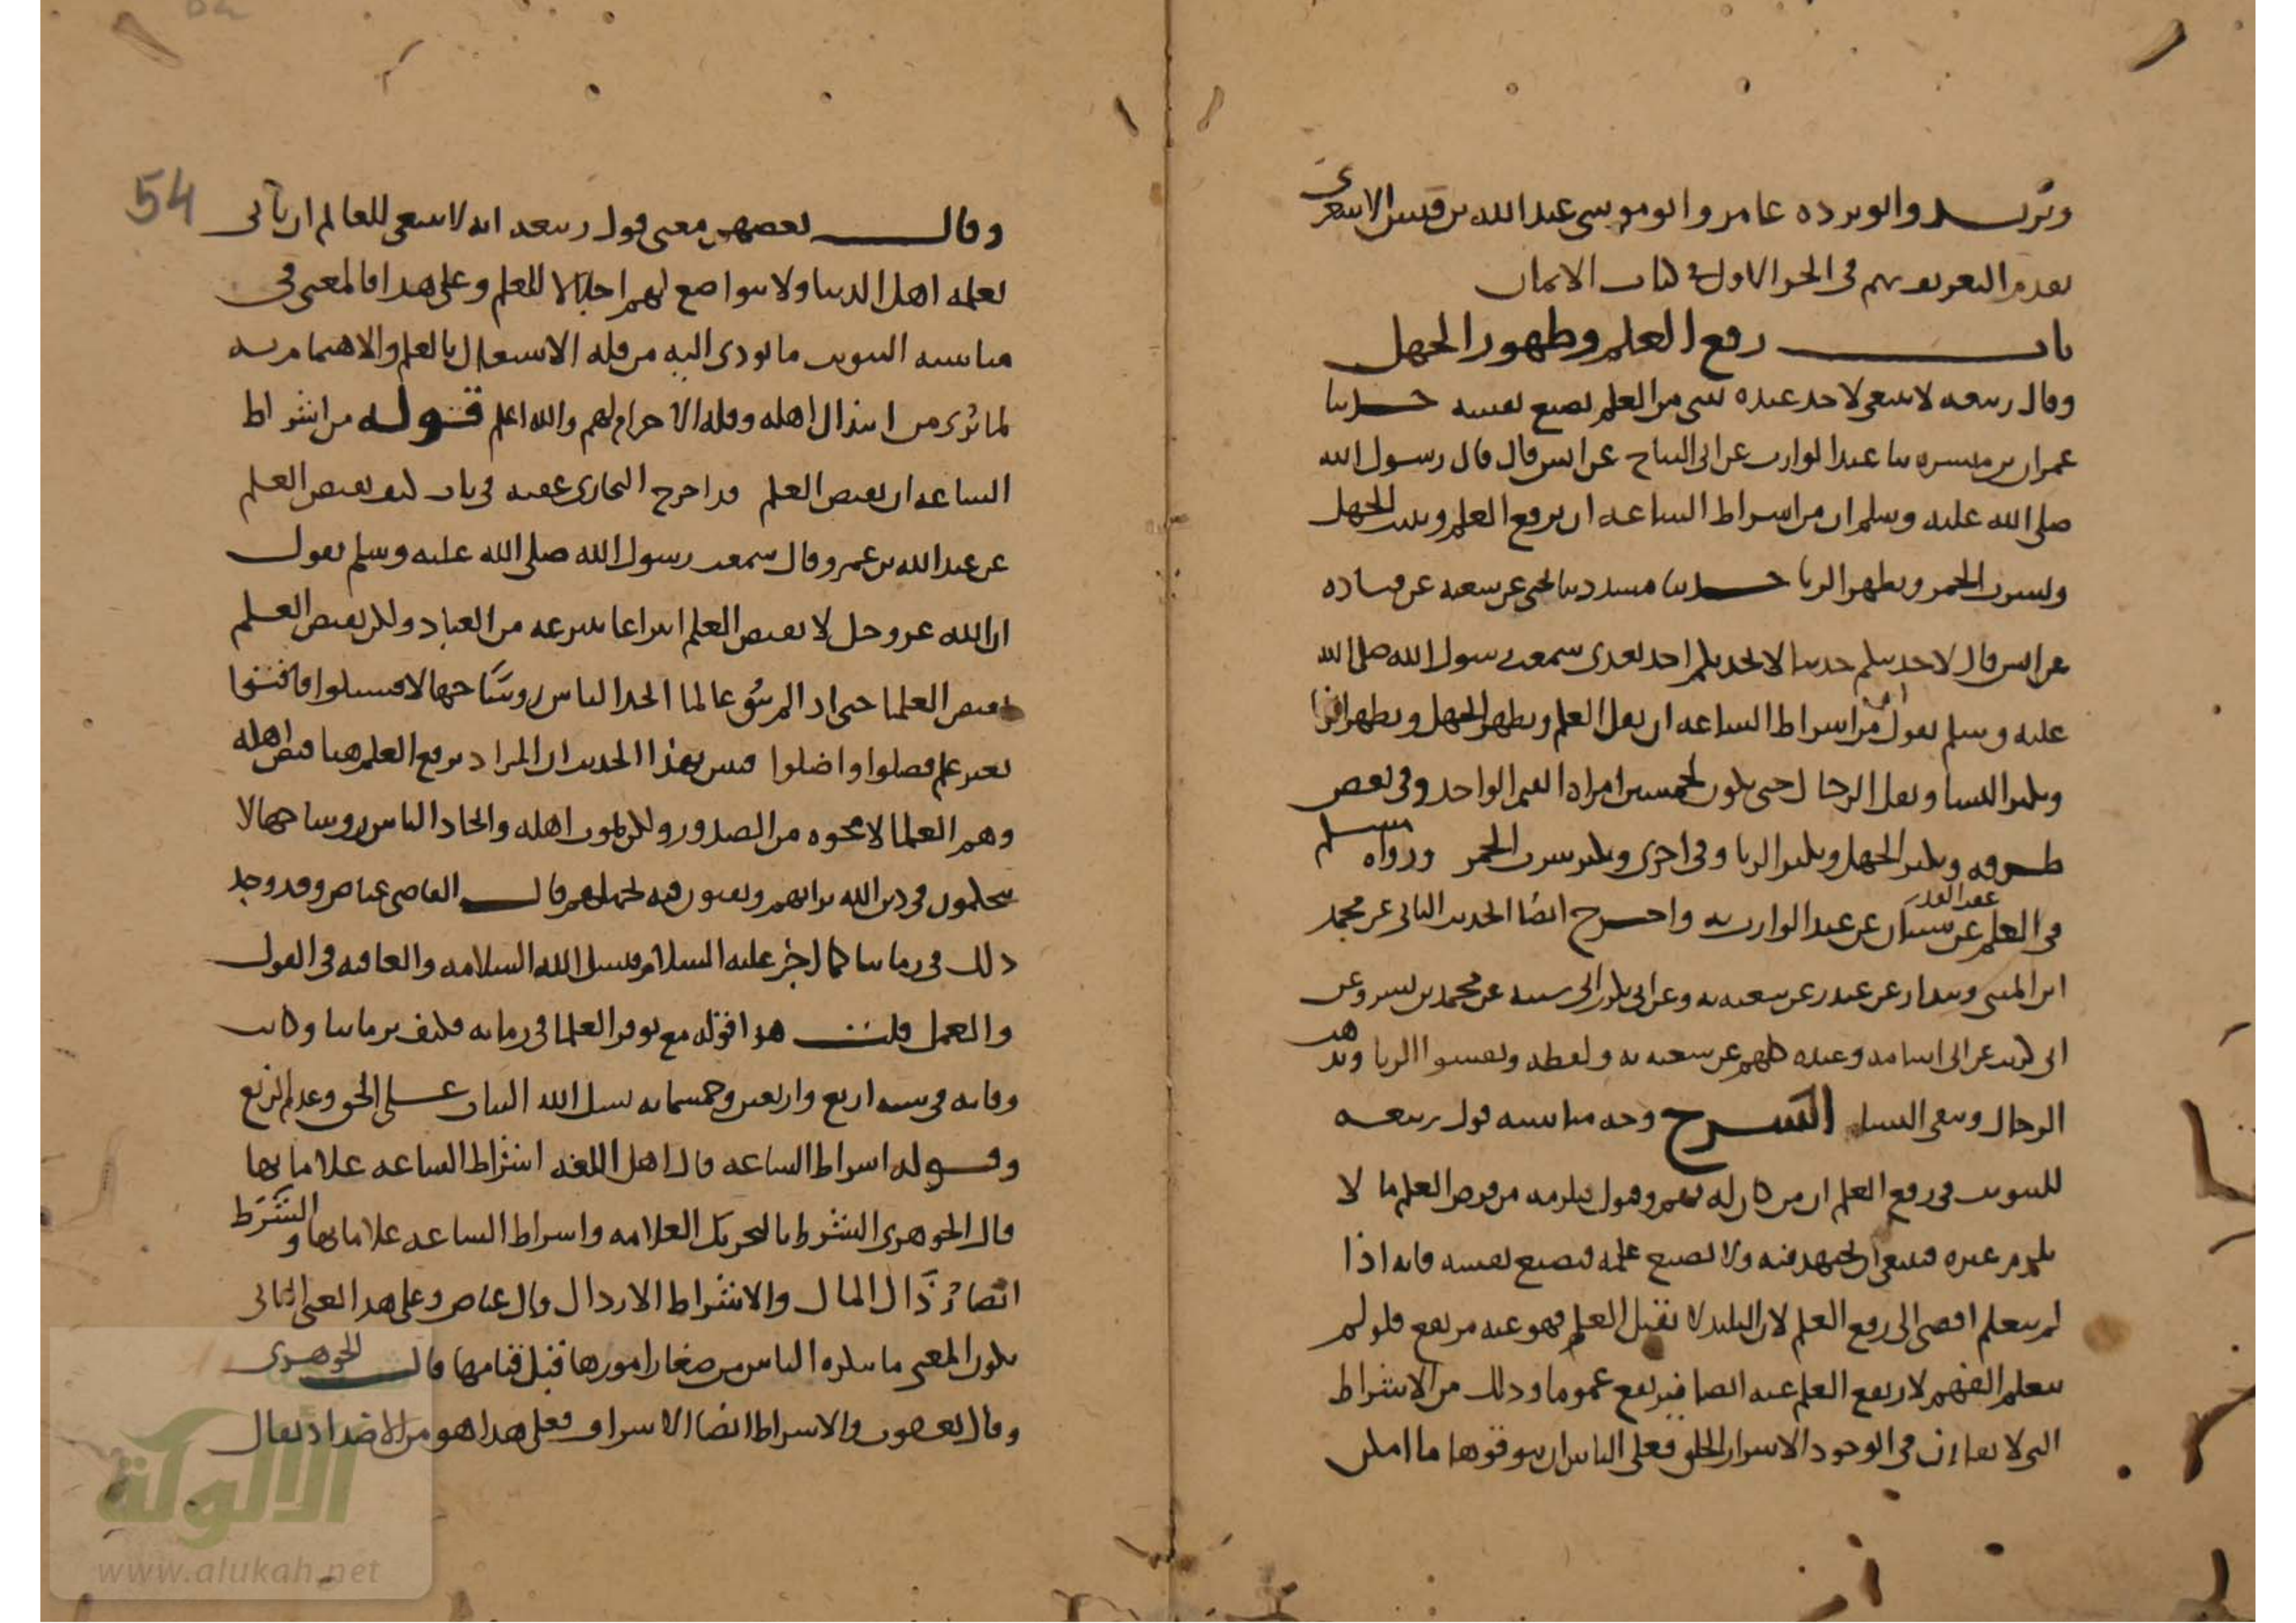 وبريد وابو برده عامر وابو موسى عبد الله بن قيس الاشعري
تقدم التعريف بهم في الجز الاول في كتاب الايمان
باب رفع العلم وظهور الجهل
وقال ربيعه لا ينبغي لاحد عنده شي من العلم يضيع نفسه حدثنا
عمران بن ميسره نا عبد الوارث عن ابي التياح عن انس قال قال رسول الله
صلى الله عليه وسلم ان من اشراط الساعه ان يرفع العلم ويثبت الجهل
ويشرب الخمر ويظهر الزنا حدثنا مسدد نا يحيى عن شعبه عن قتاده
عن انس قال لاحدثنكم حديثا لا يحدثكم احد بعدي سمعت رسول الله صلى الله
عليه وسلم يقول ان من اشراط الساعه ان يقل العلم ويظهر الجهل ويظهر الزنا
ويكثر النسا ويقل الرجال حتى يكون لخمسين امراه القيم الواحد وفي بعض
طرقه ويكثر الجهل ويكثر الزنا وفي اخرى ويكثر شرب الخمر ورواه مسلم
في العلم عن شيبان عن عبد الوارث به واخرج ايضا الحديث الثاني عن محمد
ابن المثنى وبندار عن غندر عن شعبه به وعن ابي بكر بن ابي شيبه عن محمد بن بشر وعن
ابي كريب عن ابي اسامه وعبده كلهم عن سعيد به ولفظه ويفشوا الزنا ويذهب
الرجال وتبقى النسا الشرح وجه مناسبه قول ربيعه
للتبويب في رفع العلم ان من كان له فهم وقبول يلزمه من فرض العلم ما لا
يلزم غيره فينبغي ان يجتهد فيه ولا يضيع علمه فيضيع نفسه فانه اذا
لم يتعلم افضى الى رفع العلم لان البليد لا يقبل العلم فهو عنه مرتفع فلو لم
يتعلم الفهم لارتفع العلم عنه ايضا فيرتفع عموما وذلك من الاشراط
التي لا تقارن في الوجود الا شرار الخلق فعلى الناس ان يتوقوها ما امكن
54
وقال بعضهم معنى قول ربيعه انه لا ينبغي للعالم ان ياتي
بعلمه اهل الدنيا ولا يتواضع لهم اجلالا للعلم وعلى هذا فالمعنى في
مناسبه التبويب ما يودي اليه من قله الاشتغال بالعلم والاهتمام به
لما يرى من ابتذال اهله وقله الاحترام لهم والله اعلم قوله من اشراط
الساعه ان يقبض العلم قد اخرج البخاري عقبه في باب كيف يقبض العلم
عن عبد الله بن عمرو قال سمعت رسول الله صلى الله عليه وسلم يقول
ان الله عز وجل لا يقبض العلم انتزاعا ينتزعه من العباد ولكن يقبض العلم
بقبض العلما حتى اذا لم يبق عالما اتخذ الناس روسا جهالا فسيلوا فافتوا
بغير علم فضلوا واضلوا فبين بهذا الحديث ان المراد برفع العلم هنا قبض اهله
وهم العلما لا محوه من الصدور ولكن بموت اهله واتخاذ الناس روسا جهالا
يتحكمون في دين الله برايهم ويفتون فيه بجهلهم قال القاضي عياض وقد وجد
ذلك في زماننا كما اخبر عليه السلام فنسل الله السلامه والعافيه في القول
والعمل قلت هذا قوله مع توفر العلما في زمانه فكيف بزماننا وكانت
وفاته في سنه اربع واربعين وخمسمايه نسل الله الثبات على الحق وعدم الزيغ
وقوله اشراط الساعه قال اهل اللغه اشراط الساعه علاماتها
قال الجوهري الشرط بالتحريك العلامه واشراط الساعه علاماتها والشرط
ايضا رذال المال والاشراط الارذال قال عياض وعلى هذا المعنى الثاني
يكون المعنى ما ينكره الناس من صغار امورها قبل قيامها قال الجوهري
وقال يعقوب والاشراط ايضا الاشراف فعلى هذا هو من الاضداد يقال
الألوكة
www.alukah.net